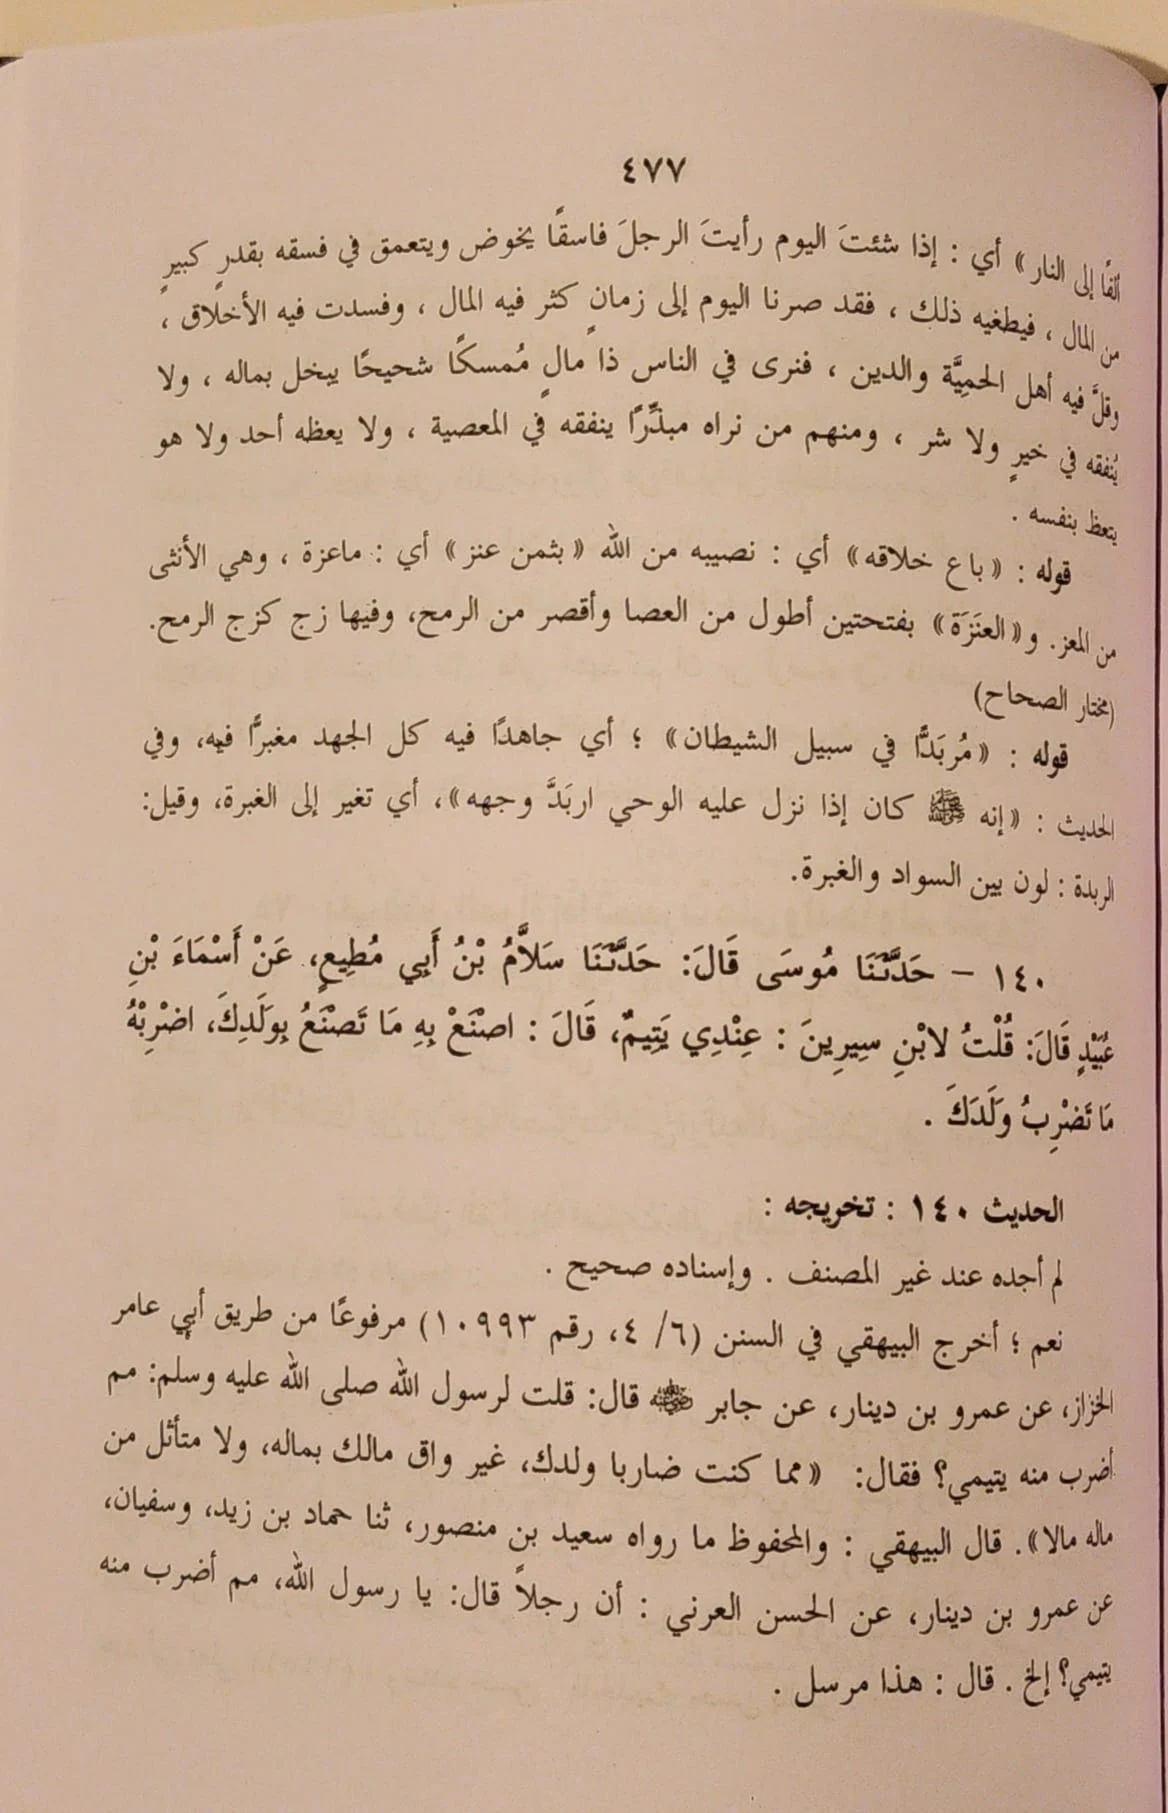 ٤٧٧
ألفًا إلى النار» أي : إذا شئتَ اليوم رأيتَ الرجلَ فاسقًا يخوض ويتعمق في فسقه بقدرٍ كبيرٍ
من المال ، فيطغيه ذلك ، فقد صرنا اليوم إلى زمانٍ كثر فيه المال ، وفسدت فيه الأخلاق ،
وقلَّ فيه أهل الحمِيَّة والدين ، فنرى في الناس ذا مالٍ مُمسكًا شحيحًا يبخل بماله ، ولا
يُنفقه في خيرٍ ولا شر ، ومنهم من نراه مبذِّرًا ينفقه في المعصية ، ولا يعظه أحد ولا هو
يتعظ بنفسه .
قوله : «باع خلاقه» أي : نصيبه من الله «بثمن عنز» أي : ماعزة ، وهي الأنثى
من المعز. و«العنَزَة» بفتحتين أطول من العصا وأقصر من الرمح، وفيها زج كزج الرمح.
(مختار الصحاح)
قوله : «مُربَدًّا في سبيل الشيطان» ؛ أي جاهدًا فيه كل الجهد مغبرًّا فيه، وفي
الحديث : «إنه ﷺ كان إذا نزل عليه الوحي اربَدَّ وجهه»، أي تغير إلى الغبرة، وقيل:
الربدة : لون بين السواد والغبرة.
١٤٠ – حَدَّثَنَا مُوسَى قَالَ: حَدَّثَنَا سَلاَّمُ بْنُ أَبِي مُطِيعٍ، عَنْ أَسْمَاءَ بْنِ
عُبَيْدٍ قَالَ: قُلْتُ لابْنِ سِيرِينَ : عِنْدِي يَتِيمٌ، قَالَ : اصْنَعْ بِهِ مَا تَصْنَعُ بِوَلَدِكَ، اضْرِبْهُ
مَا تَضْرِبُ وَلَدَكَ .
الحديث ١٤٠ : تخريجه :
لم أجده عند غير المصنف . وإسناده صحيح .
نعم ؛ أخرج البيهقي في السنن (٦/ ٤، رقم ١٠٩٩٣) مرفوعًا من طريق أبي عامر
الخزاز، عن عمرو بن دينار، عن جابر ﵁ قال: قلت لرسول الله صلى الله عليه وسلم: مم
أضرب منه يتيمي؟ فقال: «مما كنت ضاربا ولدك، غير واق مالك بماله، ولا متأثل من
ماله مالا». قال البيهقي : والمحفوظ ما رواه سعيد بن منصور، ثنا حماد بن زيد، وسفيان،
عن عمرو بن دينار، عن الحسن العرني : أن رجلاً قال: يا رسول الله، مم أضرب منه
يتيمي؟ إلخ . قال : هذا مرسل .